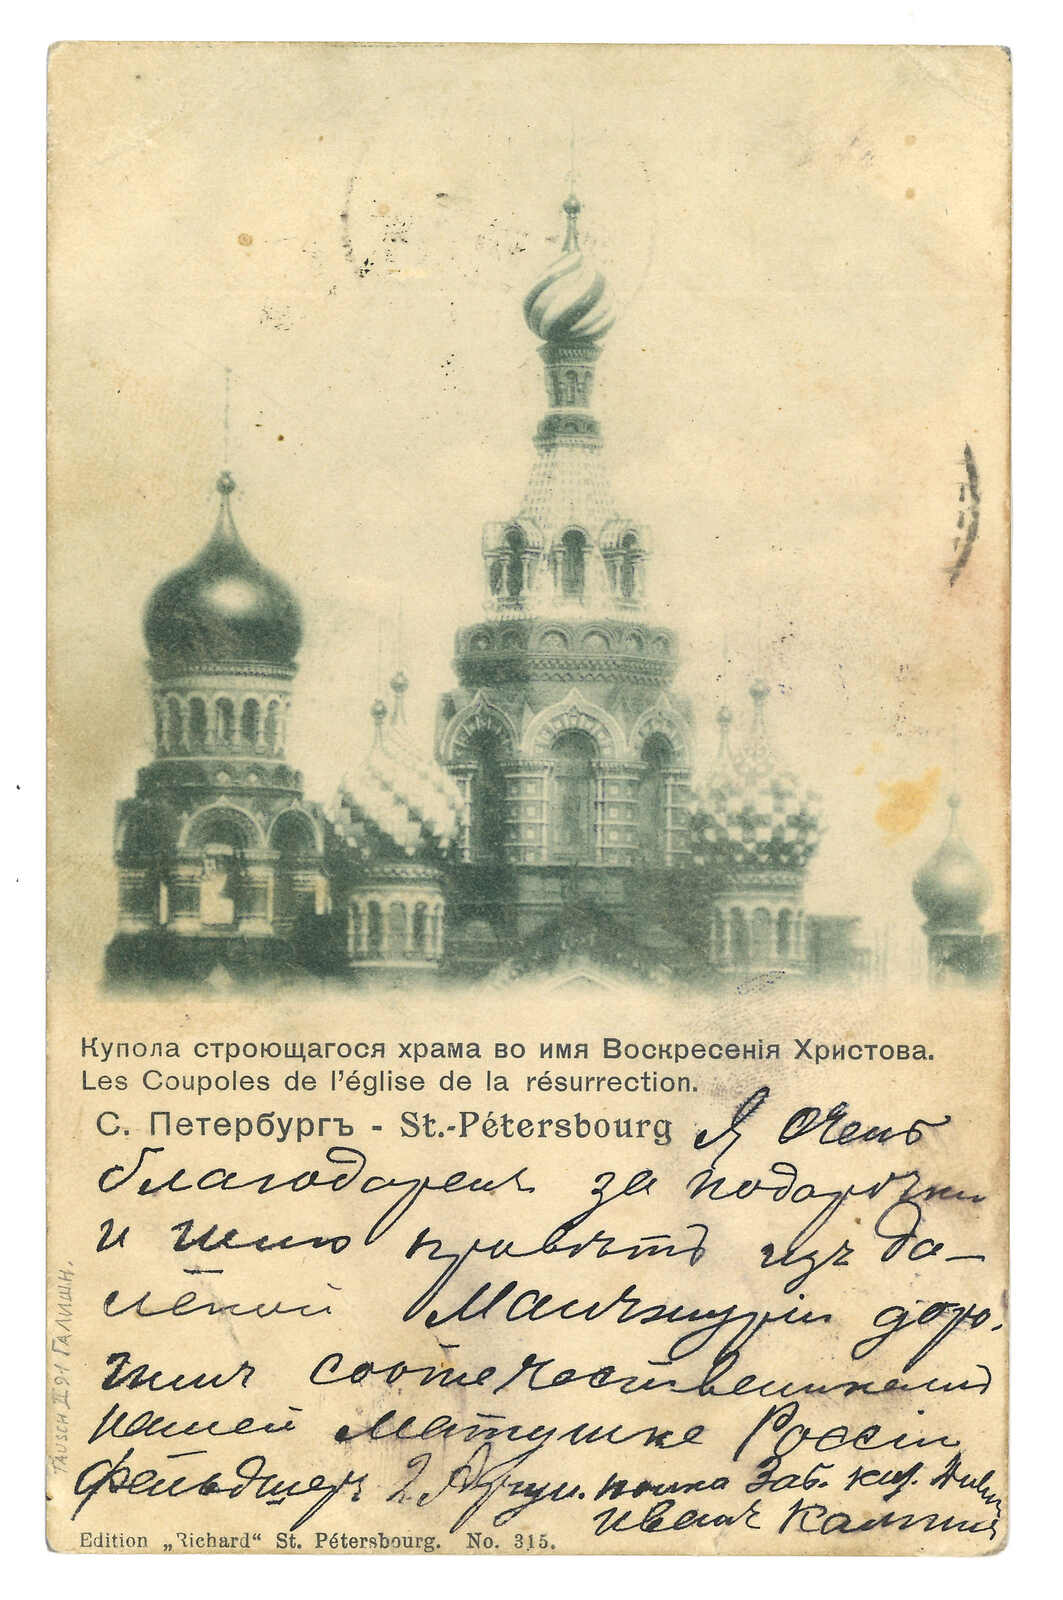 Купола строющагося храма во имя Воскресенія Христова.
Les Coupoles de l'église de la résurrection.
С. Петербургъ - St.-Pétersbourg
Я очень
благодаренъ за подарочки
и шлю привѣтъ изъ да-
лёкой Манчжуріи доро-
гимъ соотечественникамъ
нашей матушке Россіи
Фельдшеръ 2 Аргун. полка Заб. каз. Див.
Иванъ Калинин
Edition „Richard“ St. Pétersbourg. No. 315.
TAUSCH III 91 ГАЛИШН.